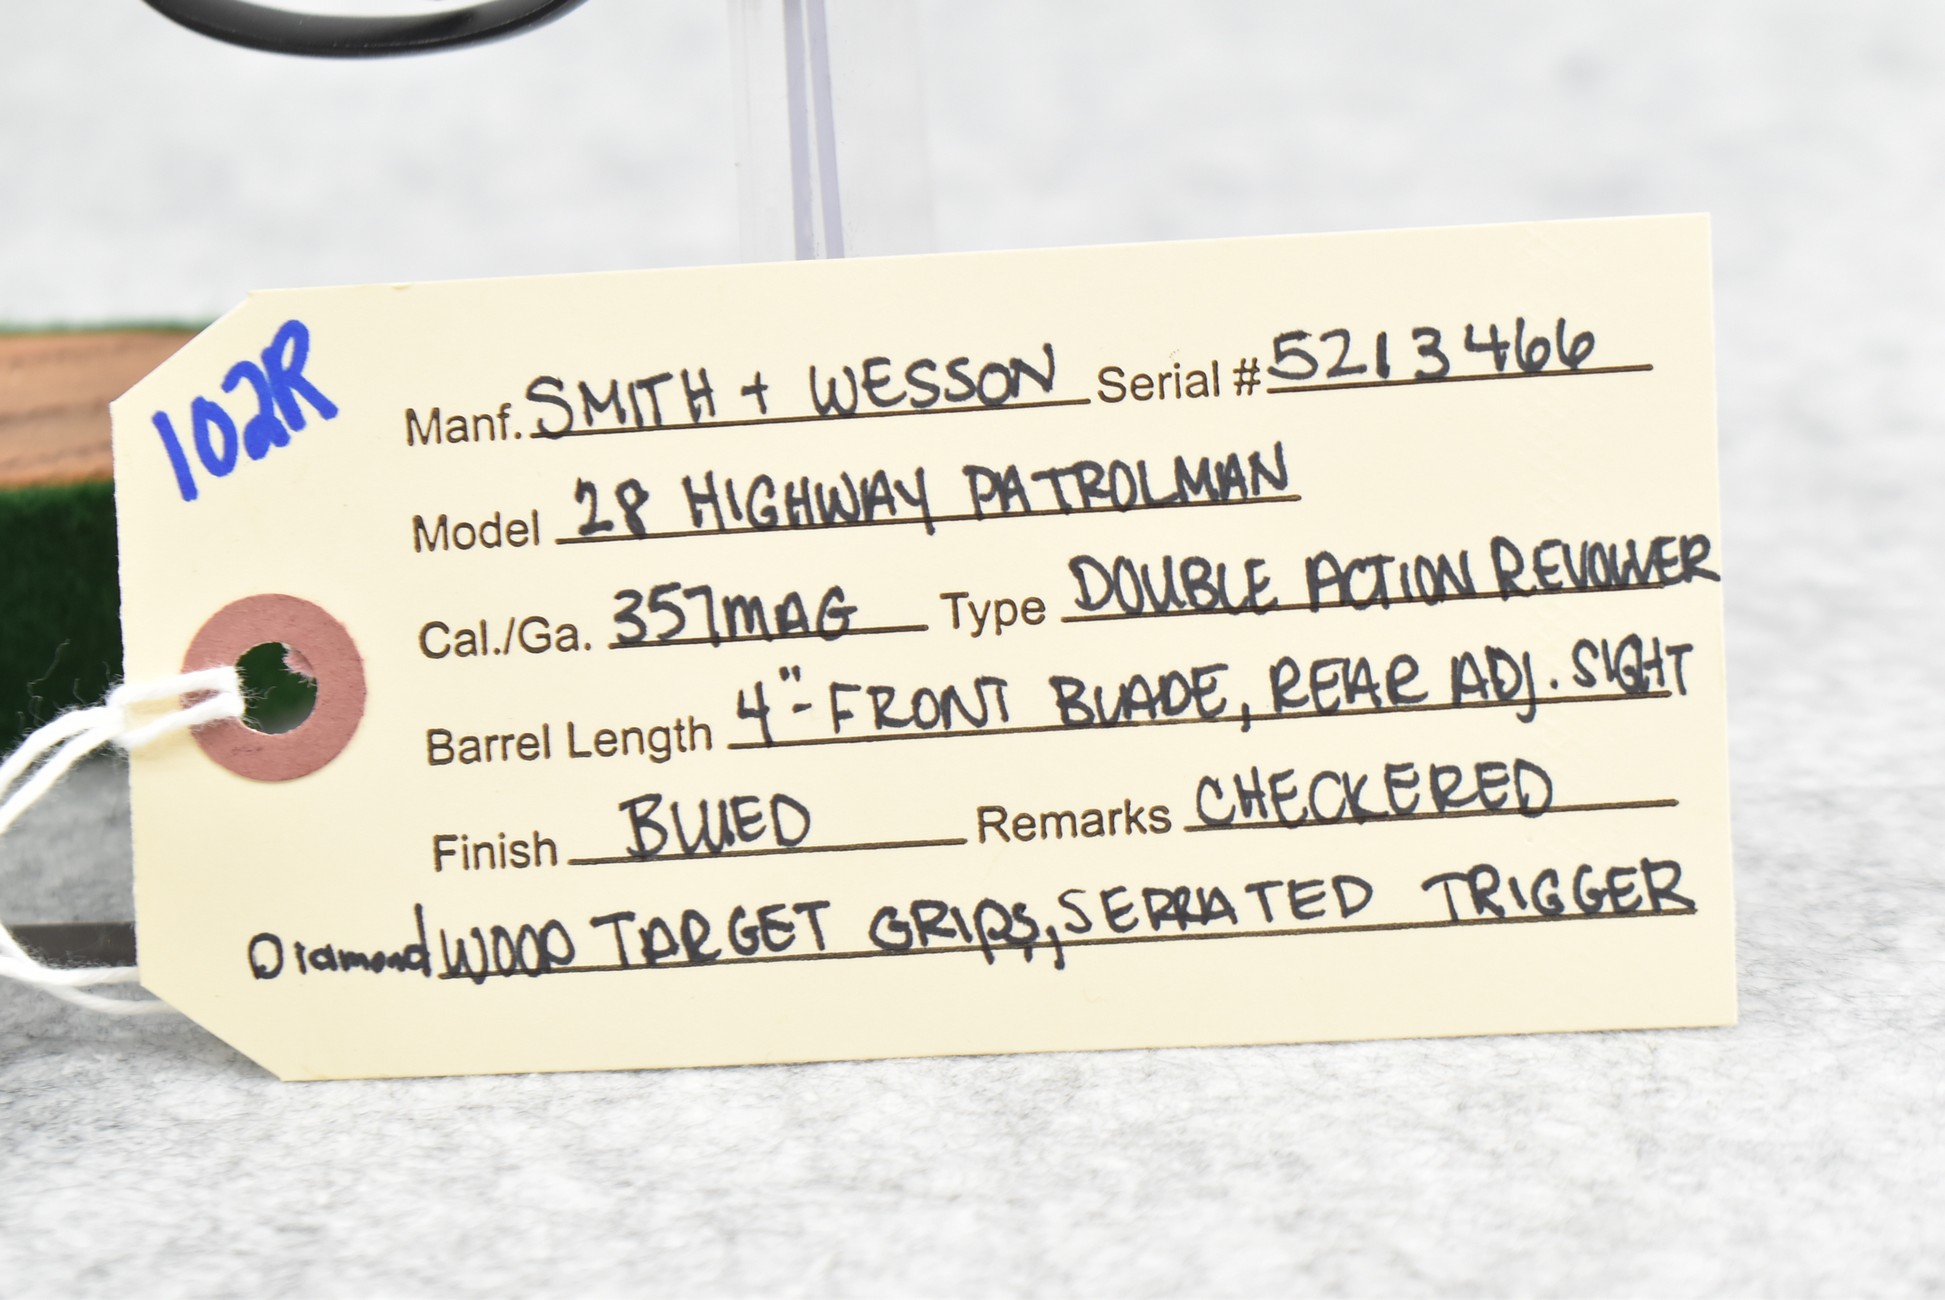 102R
Manf. SMITH + WESSON Serial # 5213466
Model 28 HIGHWAY PATROLMAN
Cal./Ga. 357MAG Type DOUBLE ACTION REVOLVER
Barrel Length 4"- FRONT BLADE, REAR ADJ. SIGHT
Finish BLUED Remarks CHECKERED
Diamond WOOD TARGET GRIPS, SERRATED TRIGGER